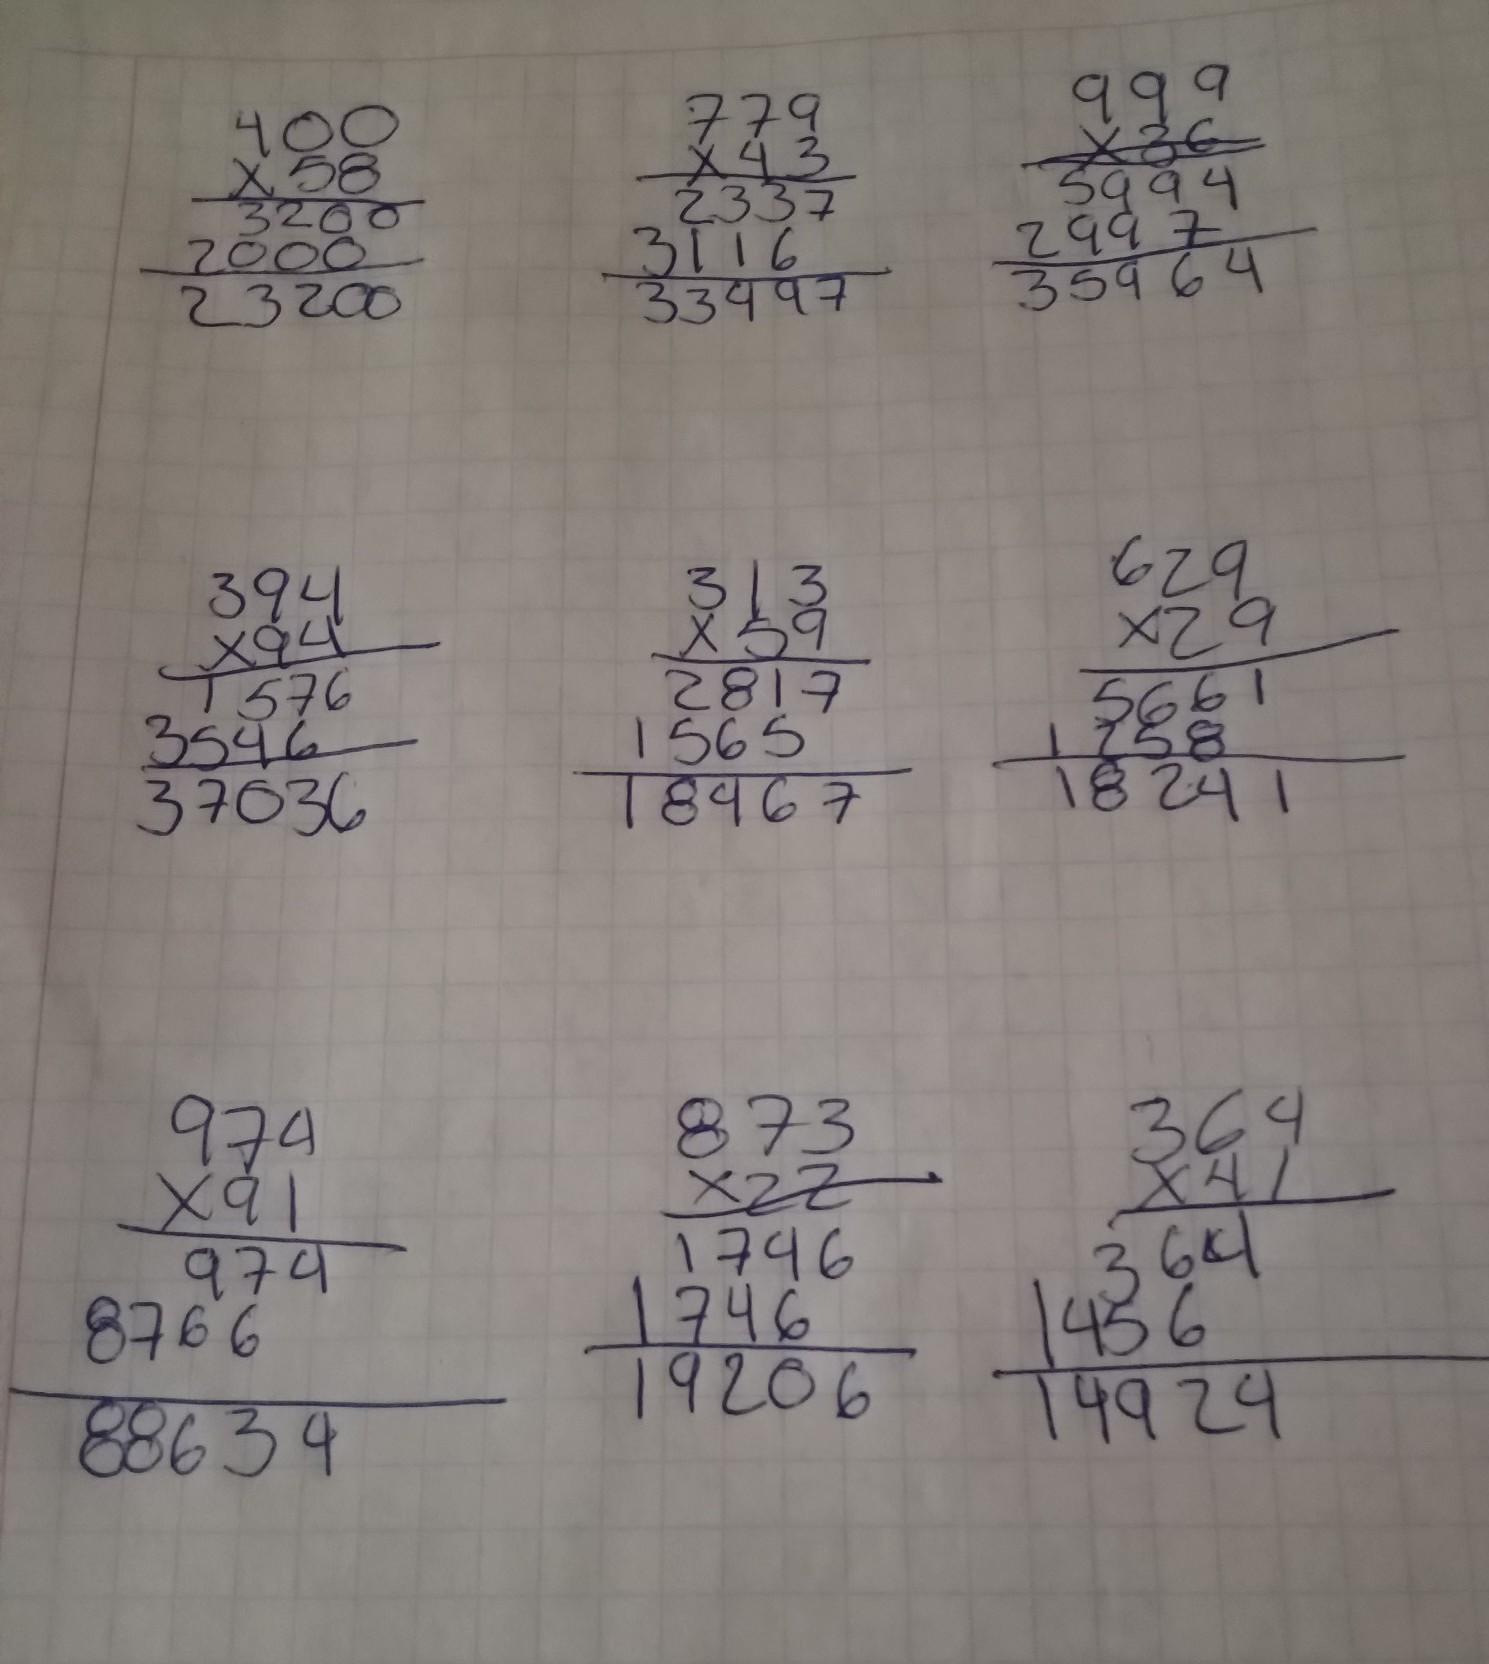 400
x 58
3200
2000
23200
779
x 43
2337
3116
33497
999
x 36
5994
2997
35964
394
x94
1576
3546
37036
313
x 59
2817
1565
18467
629
x29
5661
1258
18241
974
x91
974
8766
88634
873
x22
1746
1746
19206
364
x41
364
1456
14924